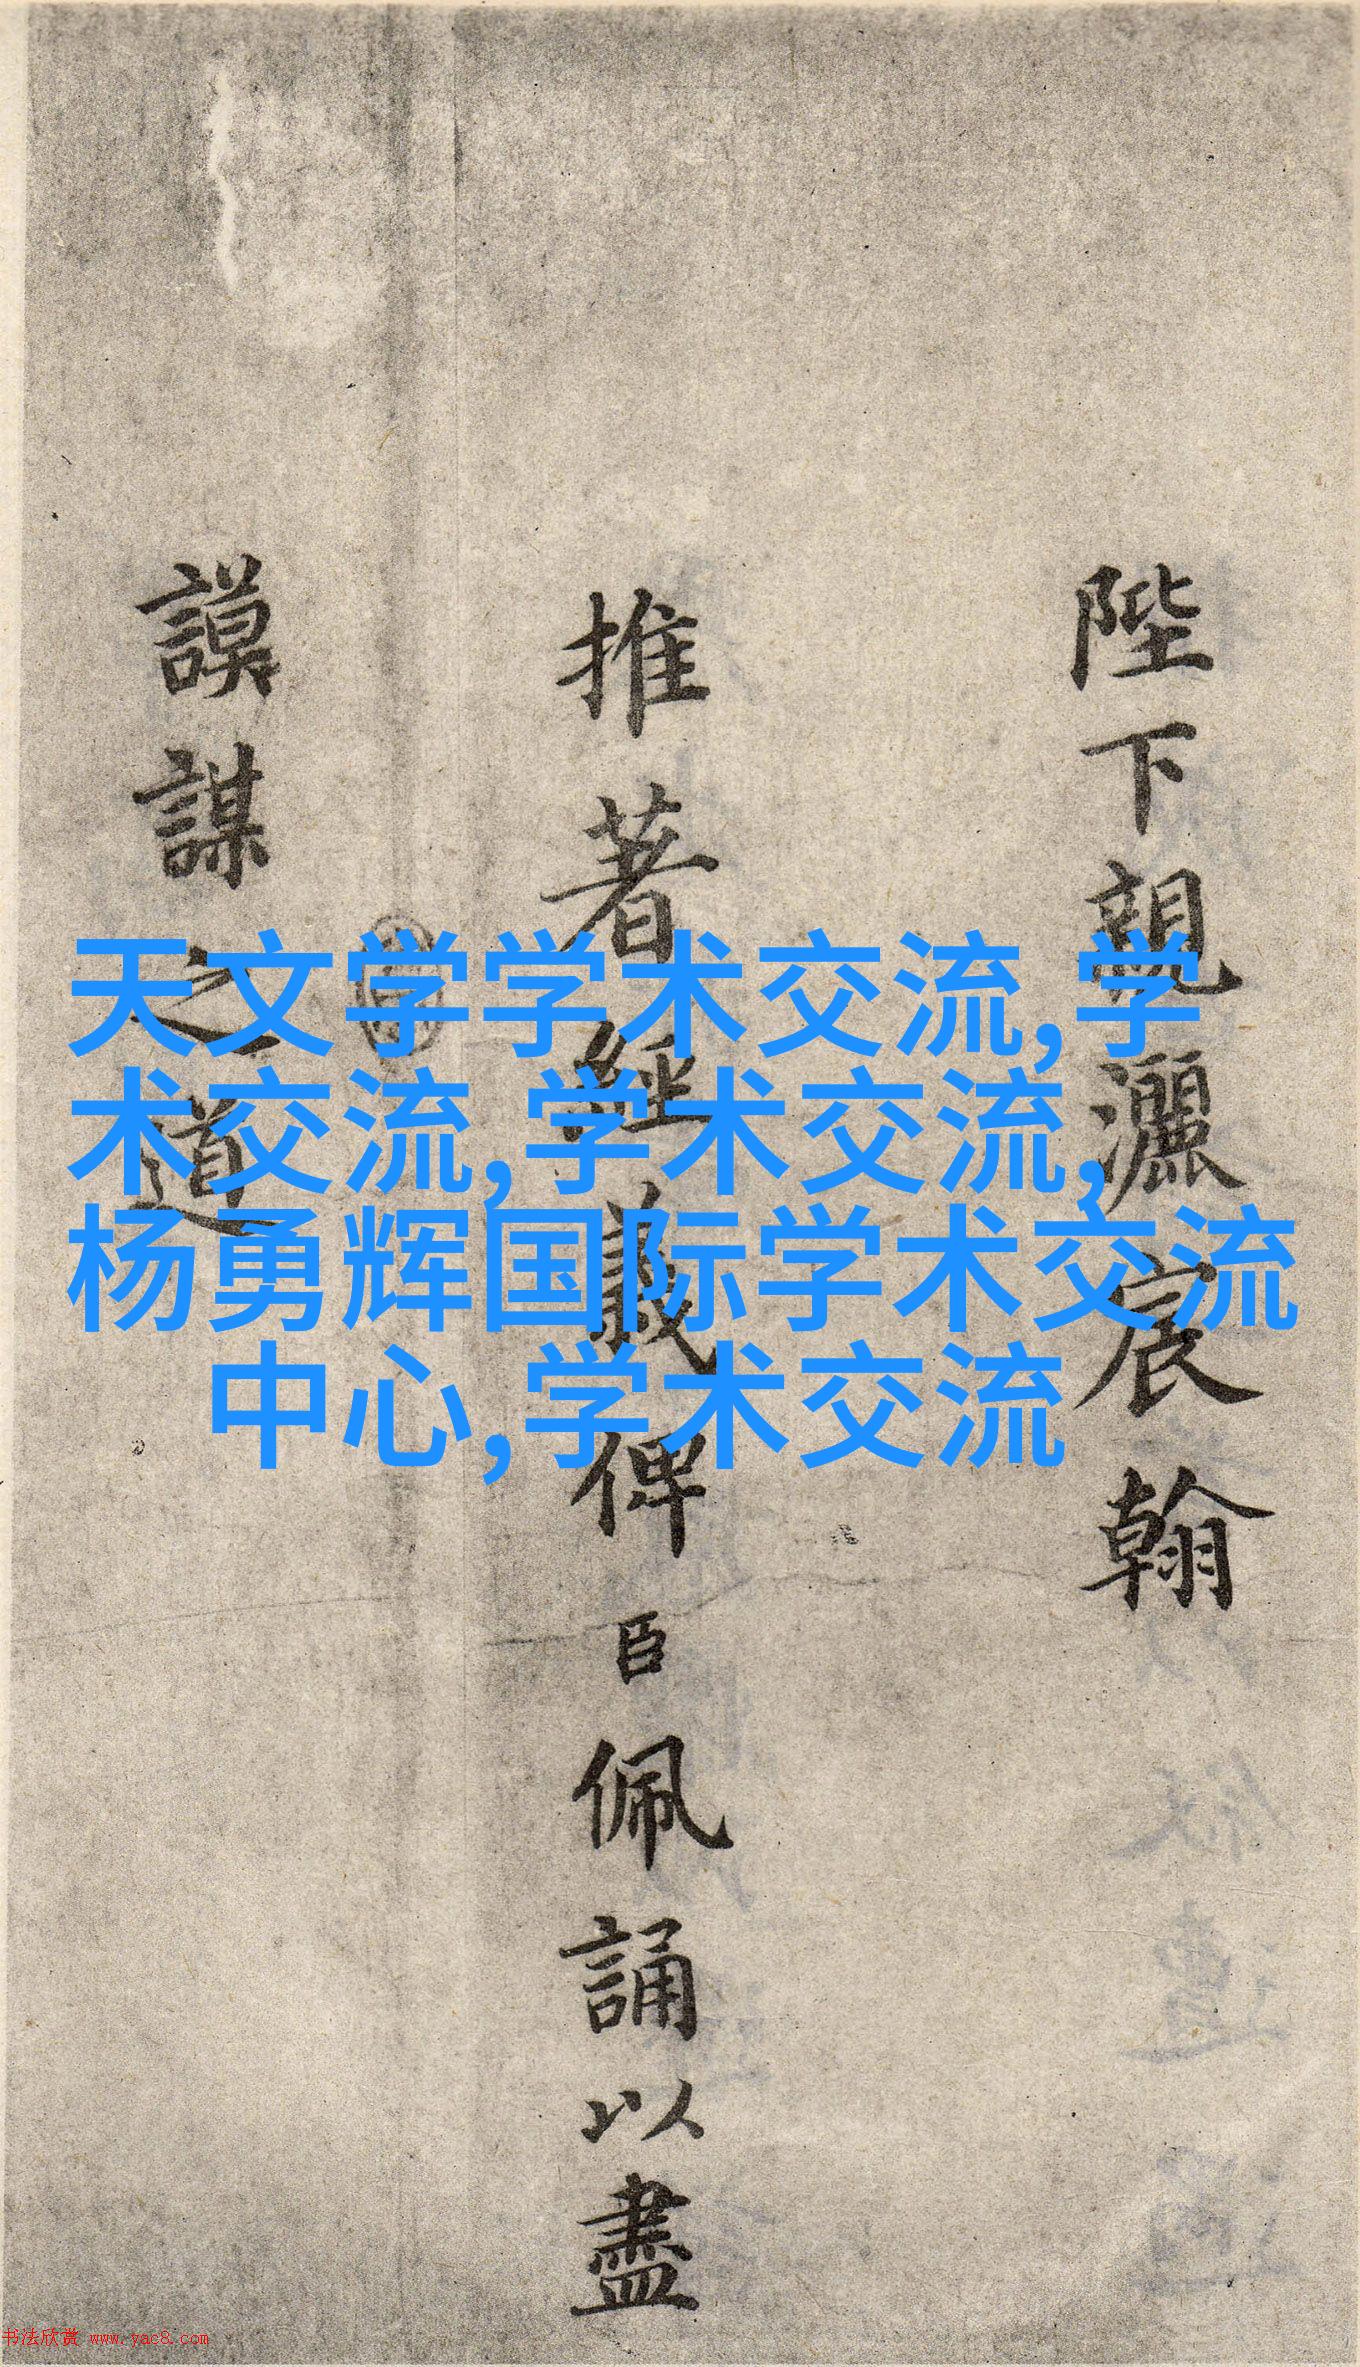 陛下親灑宸翰
推著經義俾臣佩誦以盡
謨謀之道
天文学学术交流,学
术交流,学术交流,
杨勇辉国际学术交流
中心,学术交流
书法欣赏 www.yac8.com